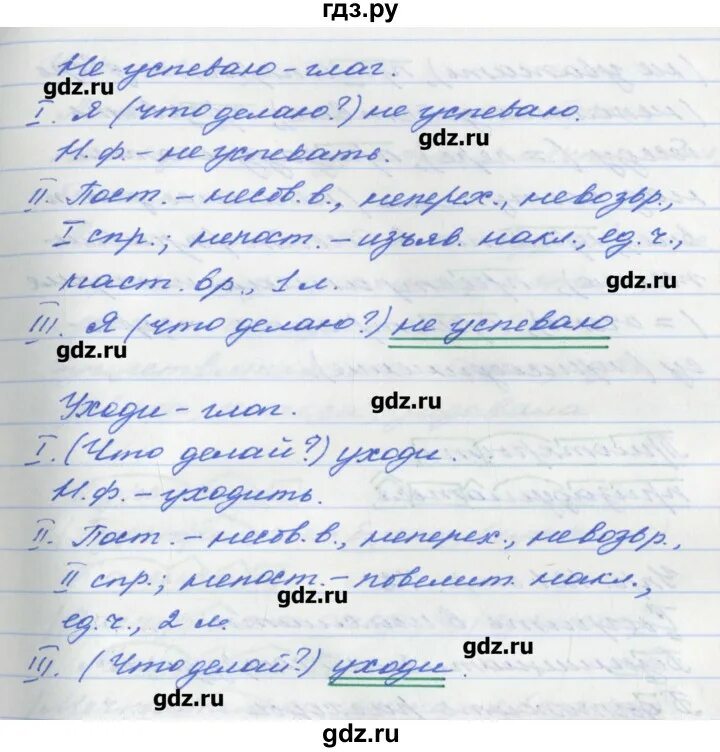 гдз.ру
Не успеваю - глаг.
gdz.ru
I. Я (что делаю?) не успеваю.
gdz.ru
Н.ф. - не успевать.
II. Пост. - несов.в., неперех., невозвр.,
I спр.; непост. - изъяв. накл., ед.ч.,
наст. вр., 1 л.
gdz.ru
III. Я (что делаю?) не успеваю
gdz.ru
gdz.ru
Уходи - глаг.
I. (Что делай?) уходи.
Н.ф. - уходить.
II. Пост. - несов.в., неперех., невозвр.,
II спр.; непост. - повелит. накл.,
gdz.ru
ед.ч., 2 л.
gdz.ru
III. (Что делай?) уходи.
gdz.ru
gdz.ru